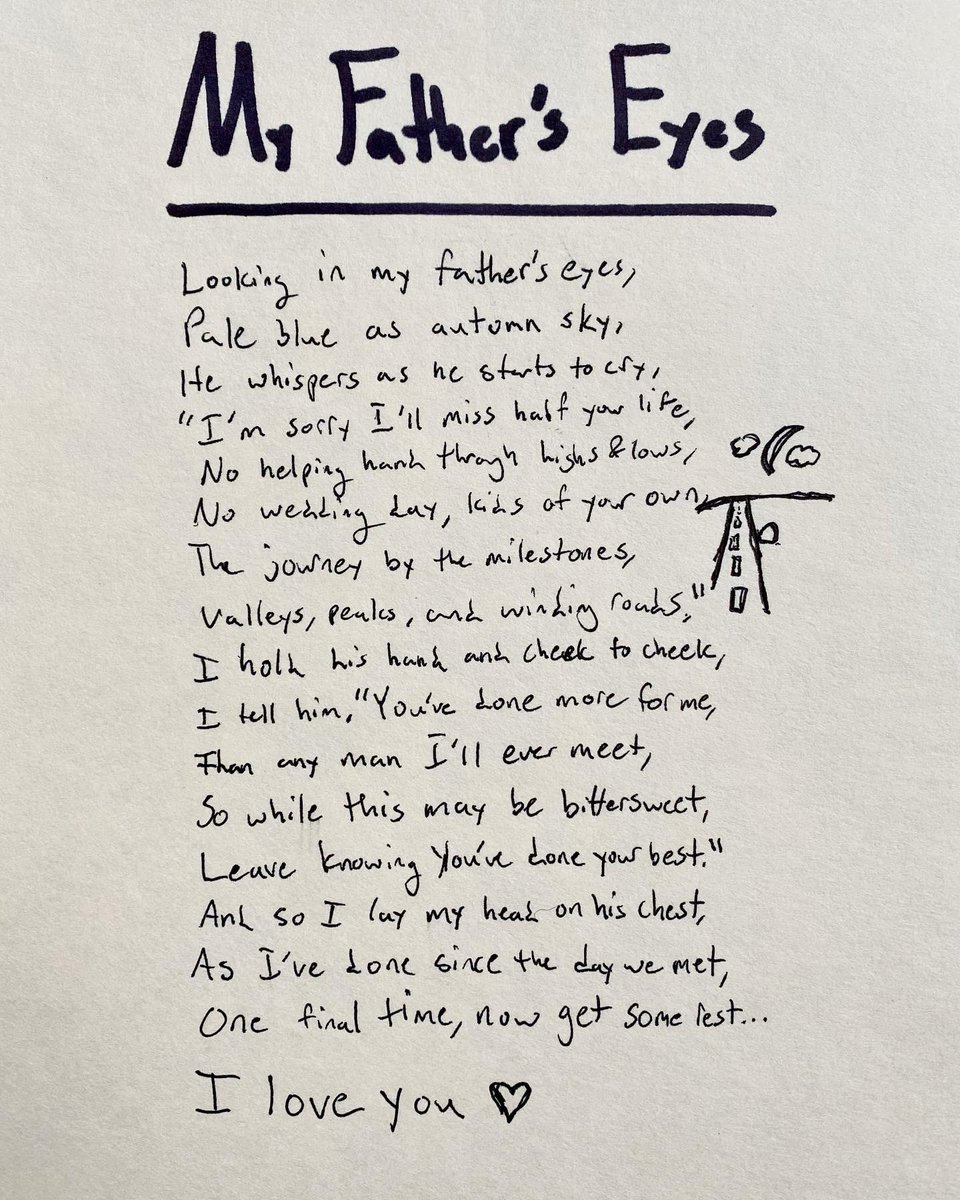 My Father's Eyes
Looking in my father's eyes,
Pale blue as autumn sky,
He whispers as he starts to cry,
"I'm sorry I'll miss half your life,
No helping hand through highs & lows,
No wedding day, kids of your own,
The journey by the milestones,
Valleys, peaks, and winding roads."
I hold his hand and cheek to cheek,
I tell him, "You've done more for me,
Than any man I'll ever meet,
So while this may be bittersweet,
Leave knowing You've done your best."
And so I lay my head on his chest,
As I've done since the day we met,
One final time, now get some rest...
I love you ♡